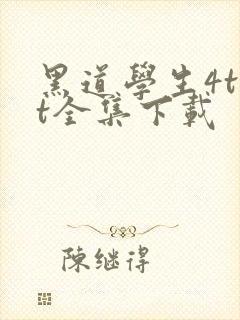 黑道學生4t
t全集下載
陳继得